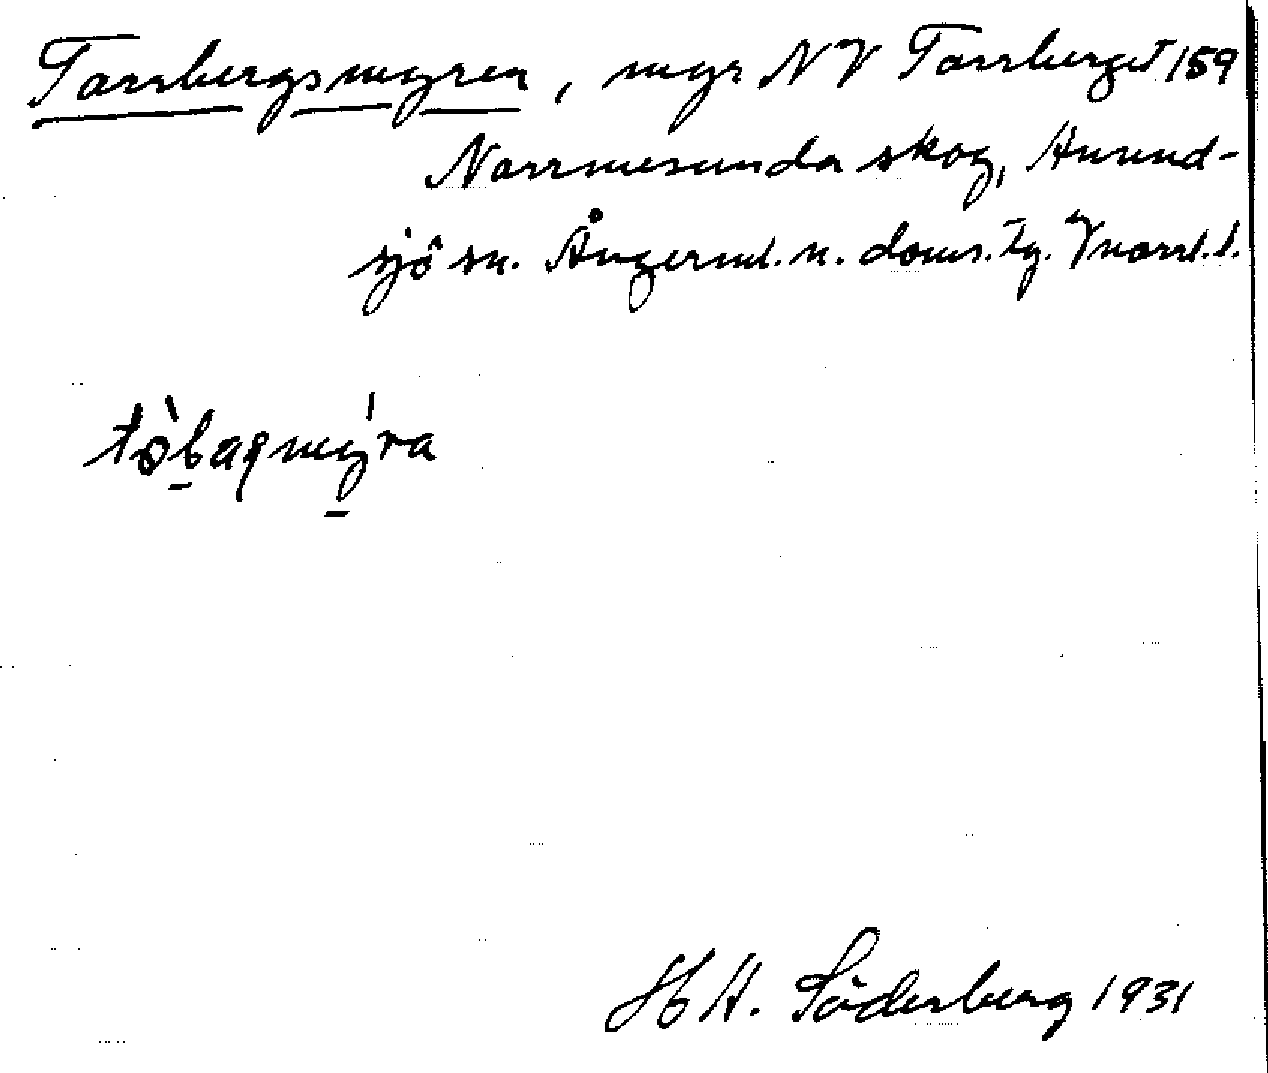 Tarrbergsmyren, myr NV Tarrberget 159
Norrmesunda skog, Anund-
sjö sn. Ångerml. n. doms. tg. Vnorrl. l.
tòbaqmýra
H A. Söderberg 1931